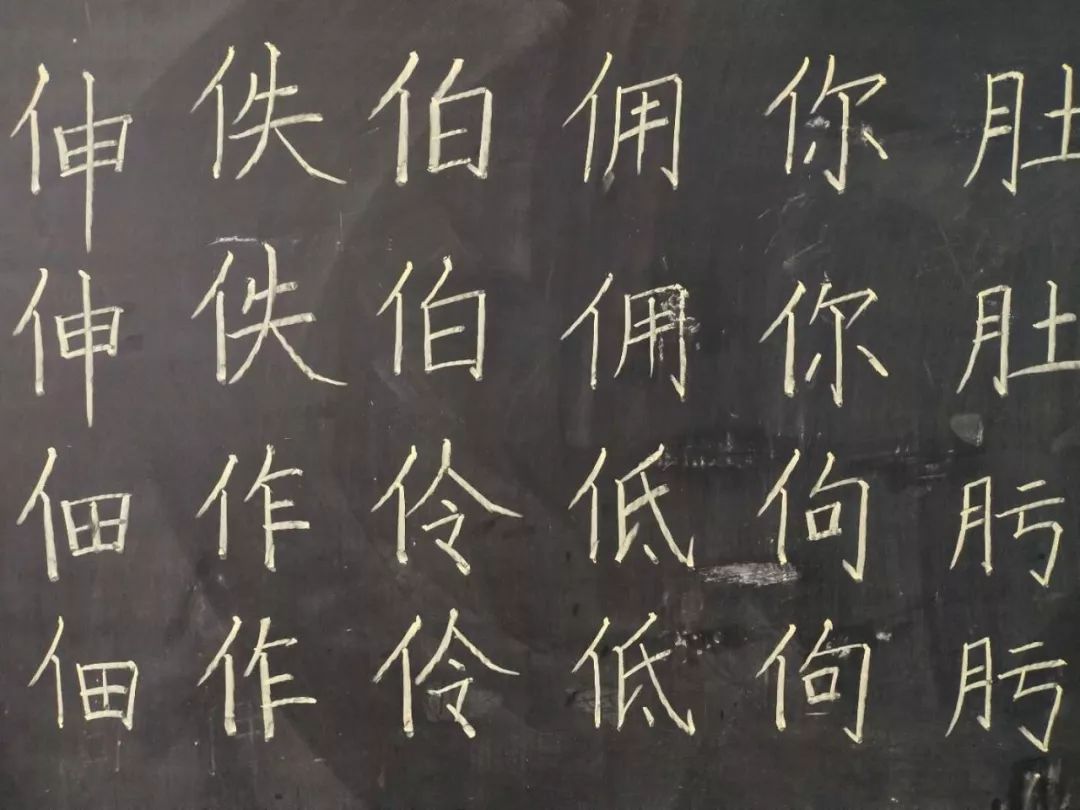 伸佚伯佣你肚
伸佚伯佣你肚
佃作伶低佝肟
佃作伶低佝肟